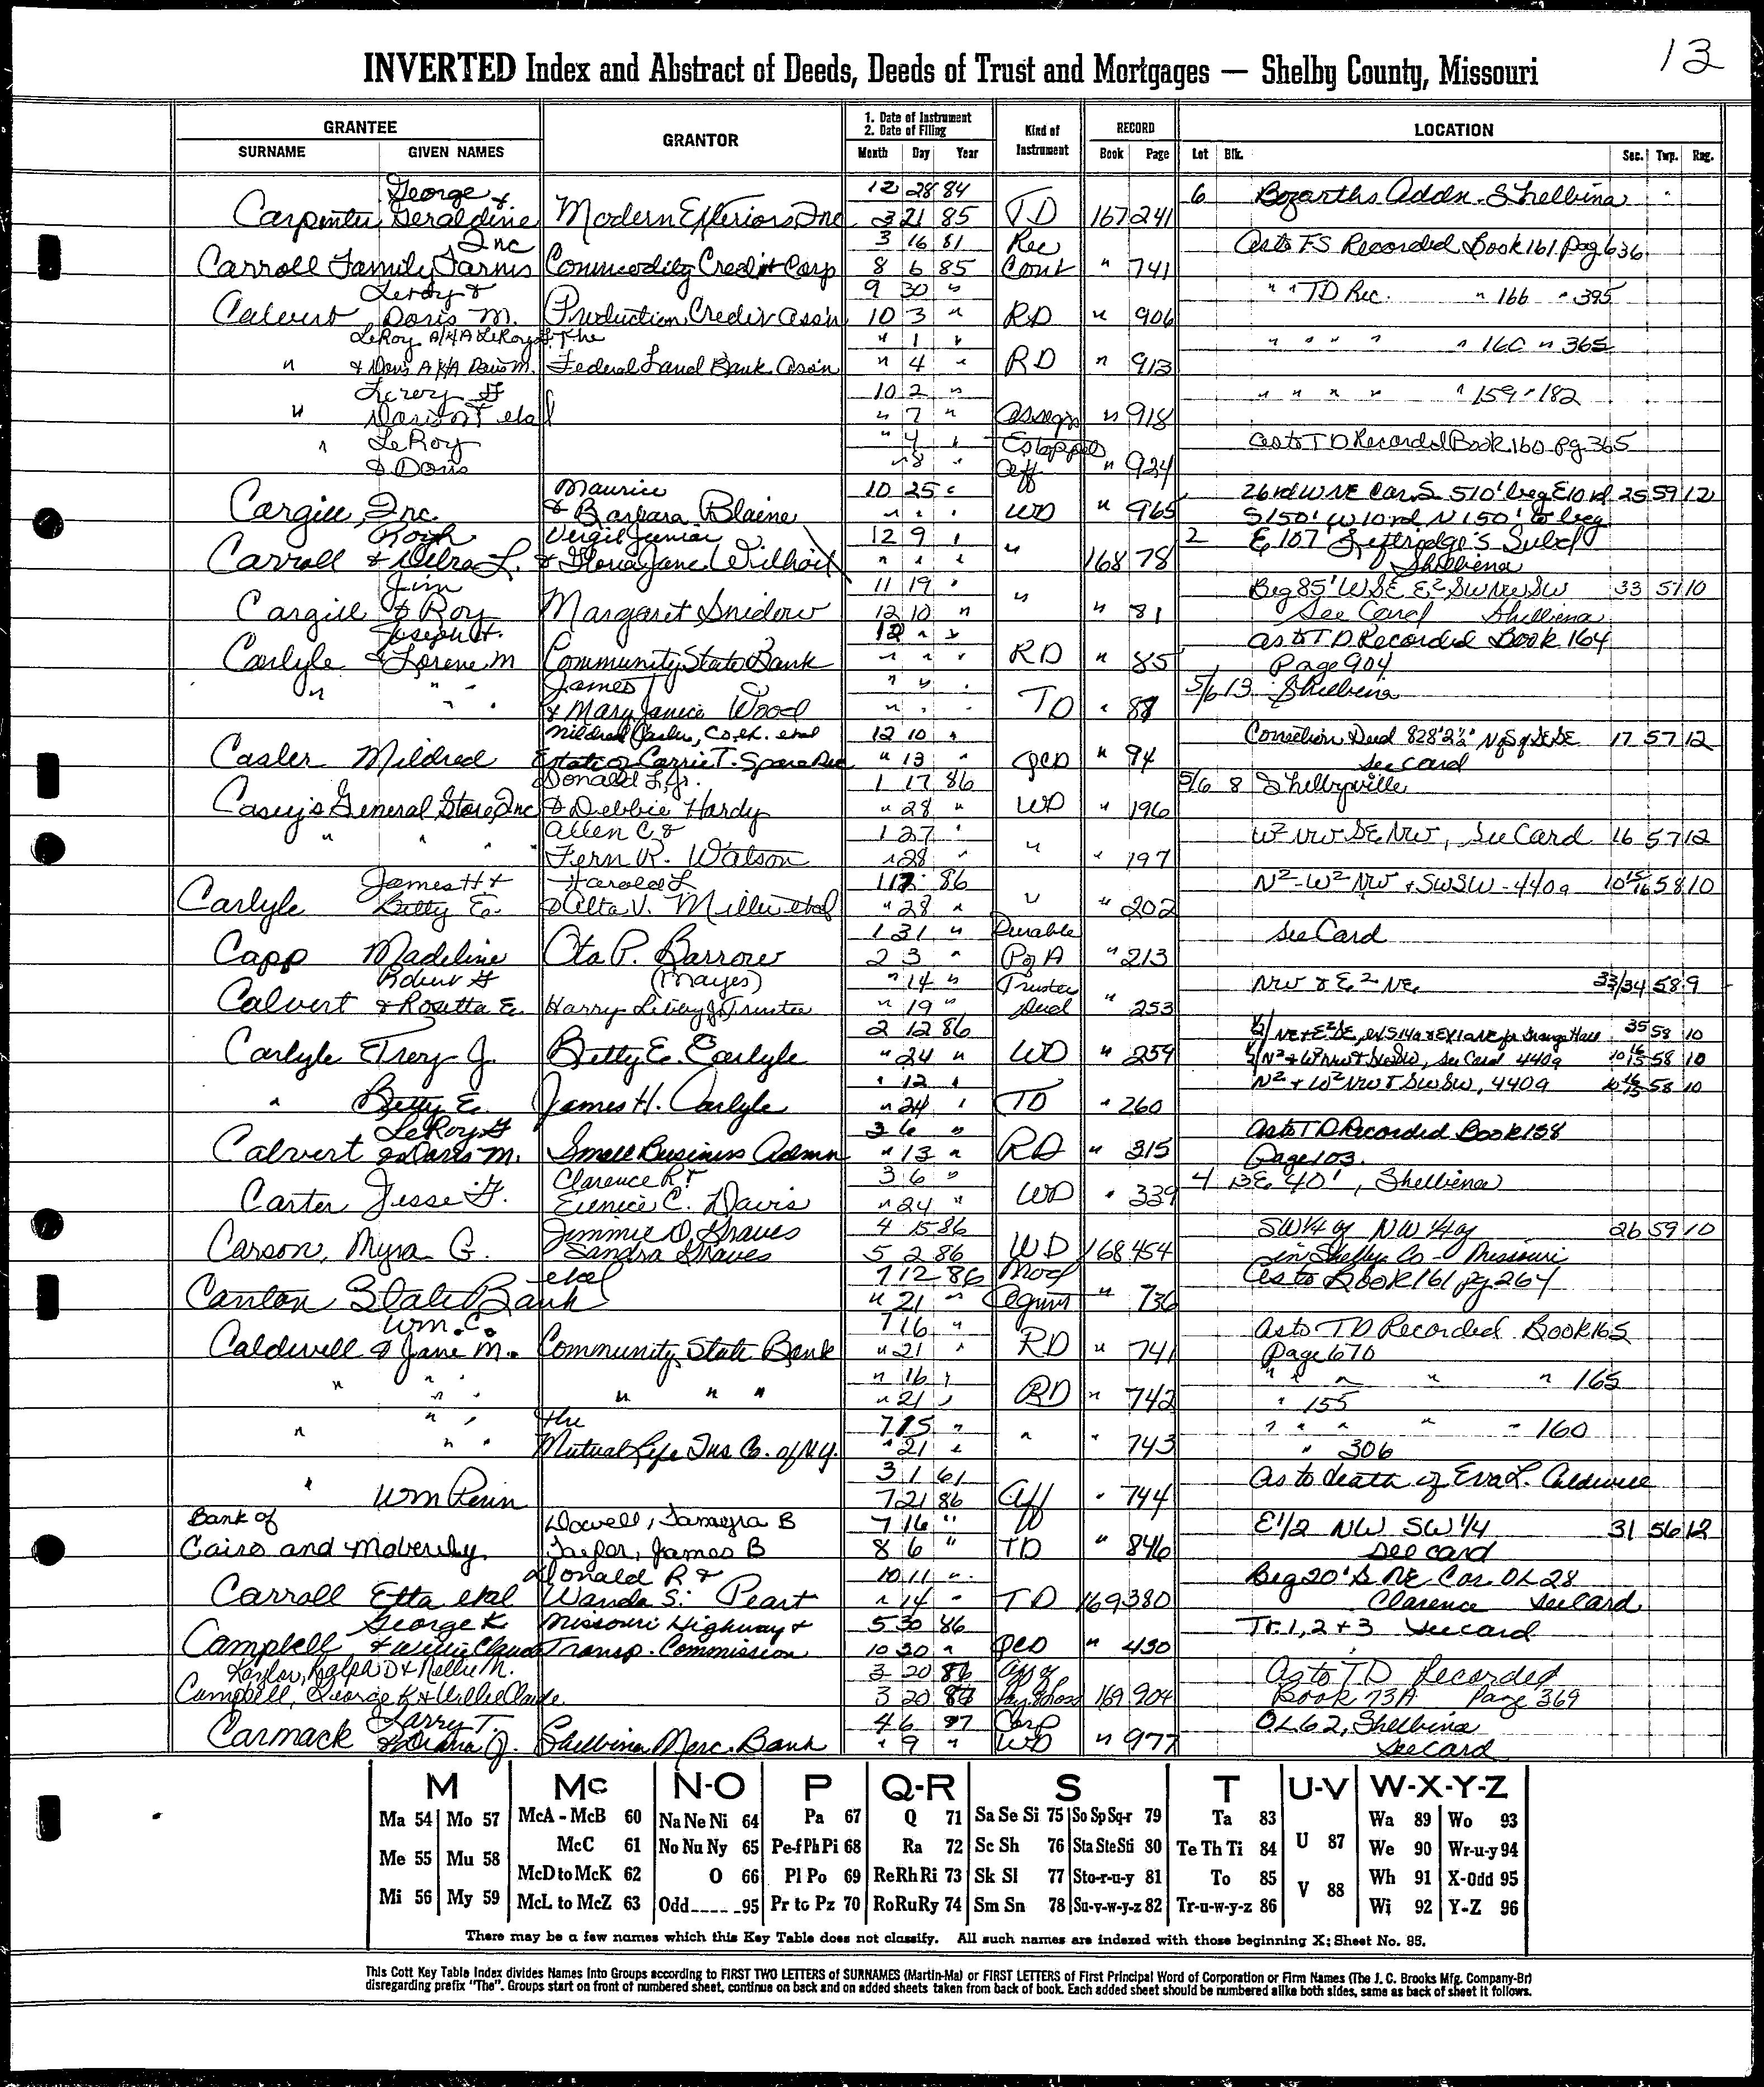 13
INVERTED Index and Abstract of Deeds, Deeds of Trust and Mortgages — Shelby County, Missouri
GRANTEE GRANTOR 1. Date of Instrument 2. Date of Filing Kind of Instrument RECORD LOCATION
SURNAME GIVEN NAMES Month Day Year Book Page Lot Blk. Sec. Twp. Rng.
George & 12 28 84 6 Bozarths Addn. Shelbina
Carpenter, Geraldine Modern Exteriors Inc 3 21 85 TD 167 241
Inc 3 16 81 Rec As to FS Recorded Book 161 pag 636
Carroll Family Farms Commodity Credit Corp 8 6 85 Cont " 741
Leroy & 9 30 " " " TD Rec. " 166 " 395
Calvert Doris M. Production Credit Ass'n 10 3 " RD " 906
LeRoy A/K/A LeRoy G. The " 1 " " " " " " 160 " 365
" & Doris A/K/A Doris M. Federal Land Bank Ass'n " 4 " RD " 913
Leroy G 10 2 " " " " " " 159 " 182
" Doris M et al " 7 " Assign " 918
" LeRoy " 4 " Estoppel As to TD Recorded Book 160 pg 365
& Doris " 8 " Aff " 924
Maurice 10 25 " 26 rd W NE Cor. S 510' beg E 10 rd 25 59 12
Cargill, Inc. & Barbara Blaine " " " WD " 965 S 150' W 10 rd N 150' to beg
Virgil Junior 12 9 " 2 E 107' Leftridge's Subd
Carroll & Delra L. & Gloria Jane Wilhoit " " " " 168 78 Shelbina
Jim 11 19 " Beg 85' W SE E² SW NW SW 33 57 10
Cargill & Roy Margaret Snidow 12 10 " " " 81 See Card Shelbina
Joseph H. 12 " " As to TD Recorded Book 164
Carlyle & Lorene M Community State Bank " " " RD " 85 Page 904
" " " James T " " " 5/6 13 Shelbina
& Mary Janice Wood " " " TD " 87
Mildred Casler, Co. Ex. et al 12 10 " Correction Deed 828' 2½" N of S of SE SE 17 57 12
Casler Mildred Estate of Carrie T. Spare Dec " 13 " QCD " 94 see card
Donald L, Jr. 1 17 86 5/6 8 Shelbyville
Casey's General Store, Inc & Debbie Hardy " 28 " WD " 196
" " " Allen C & 1 27 " W² NW SE NW, See Card 16 57 12
Fern R. Watson " 28 " " " 197
James H & Harold L 1 17 86 N² - W² NW & SWSW - 440a 10 15/16 58 10
Carlyle Betty E. & Alta V. Miller et al " 28 " " " 202
1 31 " Durable See Card
Capp Madeline Ota P. Barrow 2 3 " P of A " 213
Robert G (Mayes) " 14 " Trustee NW & E² NE 33/34 58 9
Calvert & Rosetta E. Harry Libby Jr Trustee " 19 " Deed " 253
2 12 86 35 58 10
Carlyle Troy J. Betty E. Carlyle " 24 " WD " 259 See Card 440a 58 10
" 12 " N² & W² NW & SWSW, 440a 58 10
" Betty E. James H. Carlyle " 24 " TD " 260
LeRoy G 3 6 " As to TD Recorded Book 158
Calvert & Doris M. Small Business Admn " 13 " RD " 315 Page 103
Clarence R & 3 6 " 4 13 E 40', Shelbina
Carter Jesse G. Eunice C. Davis " 24 " WD " 339
Jimmie D. Graves 4 15 86 SW¼ of NW¼ of 26 59 10
Carson, Myra G. Sandra Graves 5 2 86 WD 168 454 in Shelby Co - Missouri
et al 7 12 86 Mod As to Book 161 pg 264
Canton State Bank " 21 " Agmt " 736
Wm. C. 7 16 " As to TD Recorded Book 165
Caldwell & Jane M. Community State Bank " 21 " RD " 741 Page 670
" " " " " " " 16 " " " " " " 165
" 21 " RD " 742 " 155
" " " The 7 15 " " " " " " 160
Mutual Life Ins. Co. of N.Y. " 21 " " " 743 " 306
3 1 61 As to death of Eva L. Caldwell
" Wm Penn 7 21 86 Aff " 744
Bank of Dowell, Tamyra B 7 16 " E1/2 NW SW 1/4 31 56 12
Cairo and Moberly Taylor, James B 8 6 " TD " 846 See card
Donald R & 10 11 " Beg 20' S NE Cor. OL 28
Carroll Etta et al Wanda S. Peart " 14 " TD 169 380 Clarence See Card
George K Missouri Highway & 5 30 86 Tr. 1, 2 & 3 See card
Campbell & Willie Claude Transp. Commission 10 30 " QCD " 430
Kaylor, Ralph D & Nellie M. 3 20 86 As to TD Recorded
Campbell, George K & Willie Claude 3 20 87 169 904 Book 73A Page 369
Larry T. 4 6 87 Corp OL 62, Shelbina
Carmack & Diana J. Shelbina Merc. Bank " 9 " WD " 977 See card
M Mc N-O P Q-R S T U-V W-X-Y-Z
Ma 54 Mo 57 McA - McB 60 Na Ne Ni 64 Pa 67 Q 71 Sa Se Si 75 So Sp Sq-r 79 Ta 83 Wa 89 Wo 93
McC 61 No Nu Ny 65 Pe-f Ph Pi 68 Ra 72 Sc Sh 76 Sta Ste Sti 80 Te Th Ti 84 U 87 We 90 Wr-u-y 94
Me 55 Mu 58 McD to McK 62 O 66 Pl Po 69 Re Rh Ri 73 Sk Sl 77 Sto-r-u-y 81 To 85 Wh 91 X-Odd 95
Mi 56 My 59 McL to McZ 63 Odd 95 Pr to Pz 70 Ro Ru Ry 74 Sm Sn 78 Su-v-w-y-z 82 Tr-u-w-y-z 86 V 88 Wi 92 Y-Z 96
There may be a few names which this Key Table does not classify. All such names are indexed with those beginning X; Sheet No. 95.
This Cott Key Table Index divides Names into Groups according to FIRST TWO LETTERS of SURNAMES (Martin-Ma) or FIRST LETTERS of First Principal Word of Corporation or Firm Names (The J. C. Brooks Mfg. Company-Br)
disregarding prefix "The". Groups start on front of numbered sheet, continue on back and on added sheets taken from back of book. Each added sheet should be numbered alike both sides, same as back of sheet it follows.